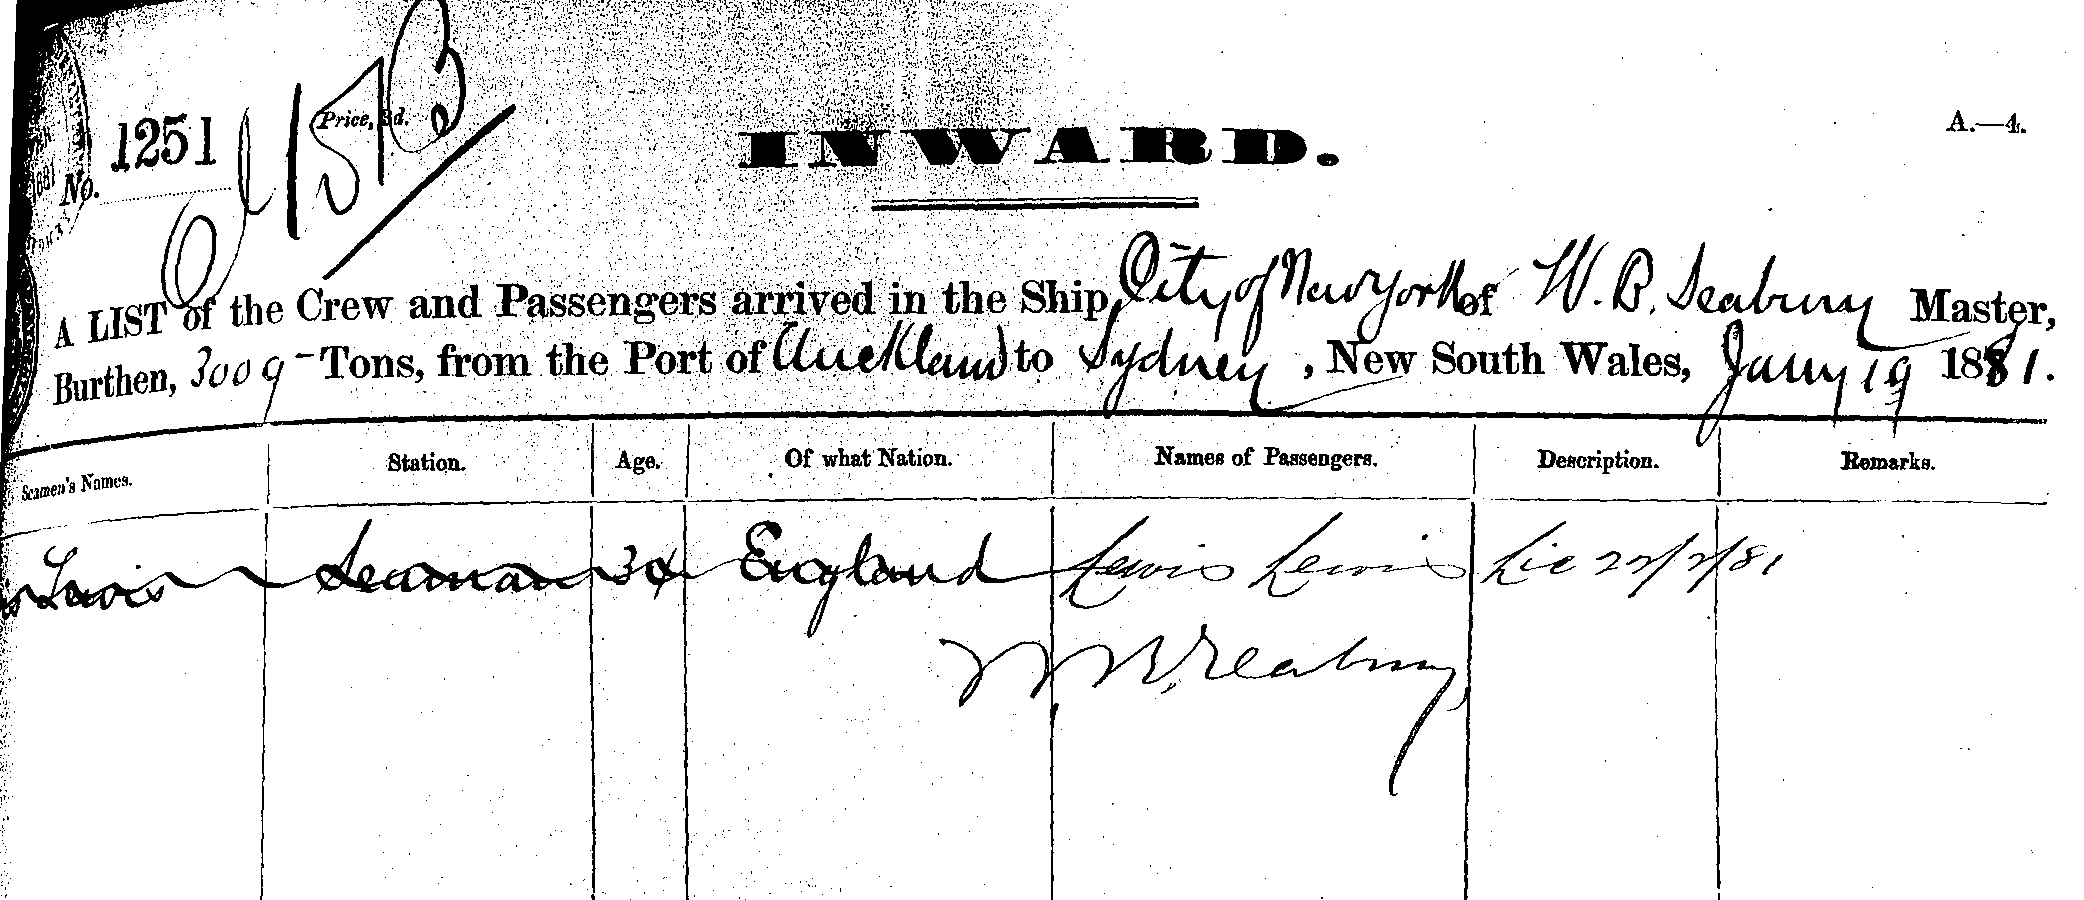 1251
Price, 3d.
No.
A.—4.
INWARD.
A LIST of the Crew and Passengers arrived in the Ship City of New York of W. B. Seabury Master,
Burthen, 3009 - Tons, from the Port of Auckland to Sydney, New South Wales, Jany 19 1881.
Seamen's Names. Station. Age. Of what Nation. Names of Passengers. Description. Remarks.
Lewis Seaman England Lewis Lewis Lic 22/2/81
W. B. Seabury